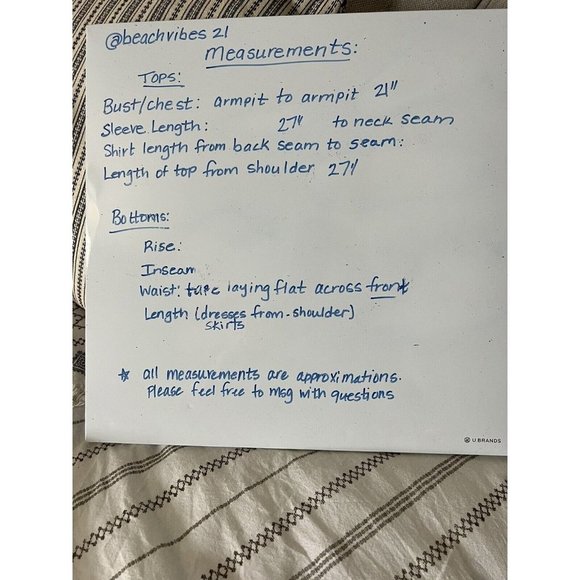 @beachvibes 21
Measurements:
Tops:
Bust/chest: armpit to armpit 21"
Sleeve Length: 27" to neck seam
Shirt length from back seam to seam:
Length of top from shoulder 27"
Bottoms:
Rise:
Inseam
Waist: tape laying flat across front
Length (dresses from-shoulder)
skirts
* all measurements are approximations.
Please feel free to msg with questions
U BRANDS